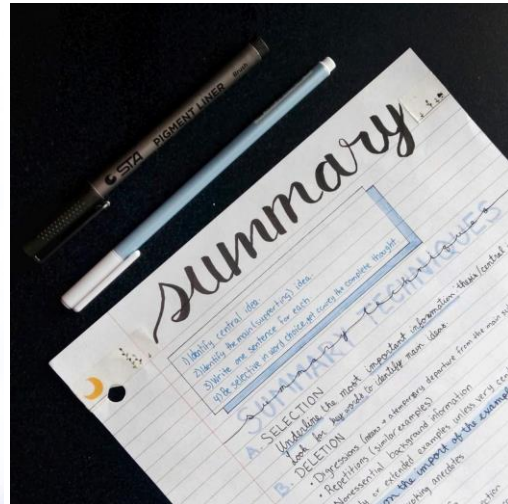 STA PIGMENT LINER Brush
summary
1) Identify central idea.
2) Identify the main (supporting) idea.
3) Write one sentence for each
4) Be selective in word choice, yet convey the complete thought
SUMMARY TECHNIQUES
summary techniques
A. SELECTION
Underline the most important information thesis/central
Look for key words to identify main ideas.
B. DELETION
• Digressions (means → a temporary departure from the main
• Repetitions (similar examples)
Nonessential background information
extended examples unless very
the import of the example
anecdotes